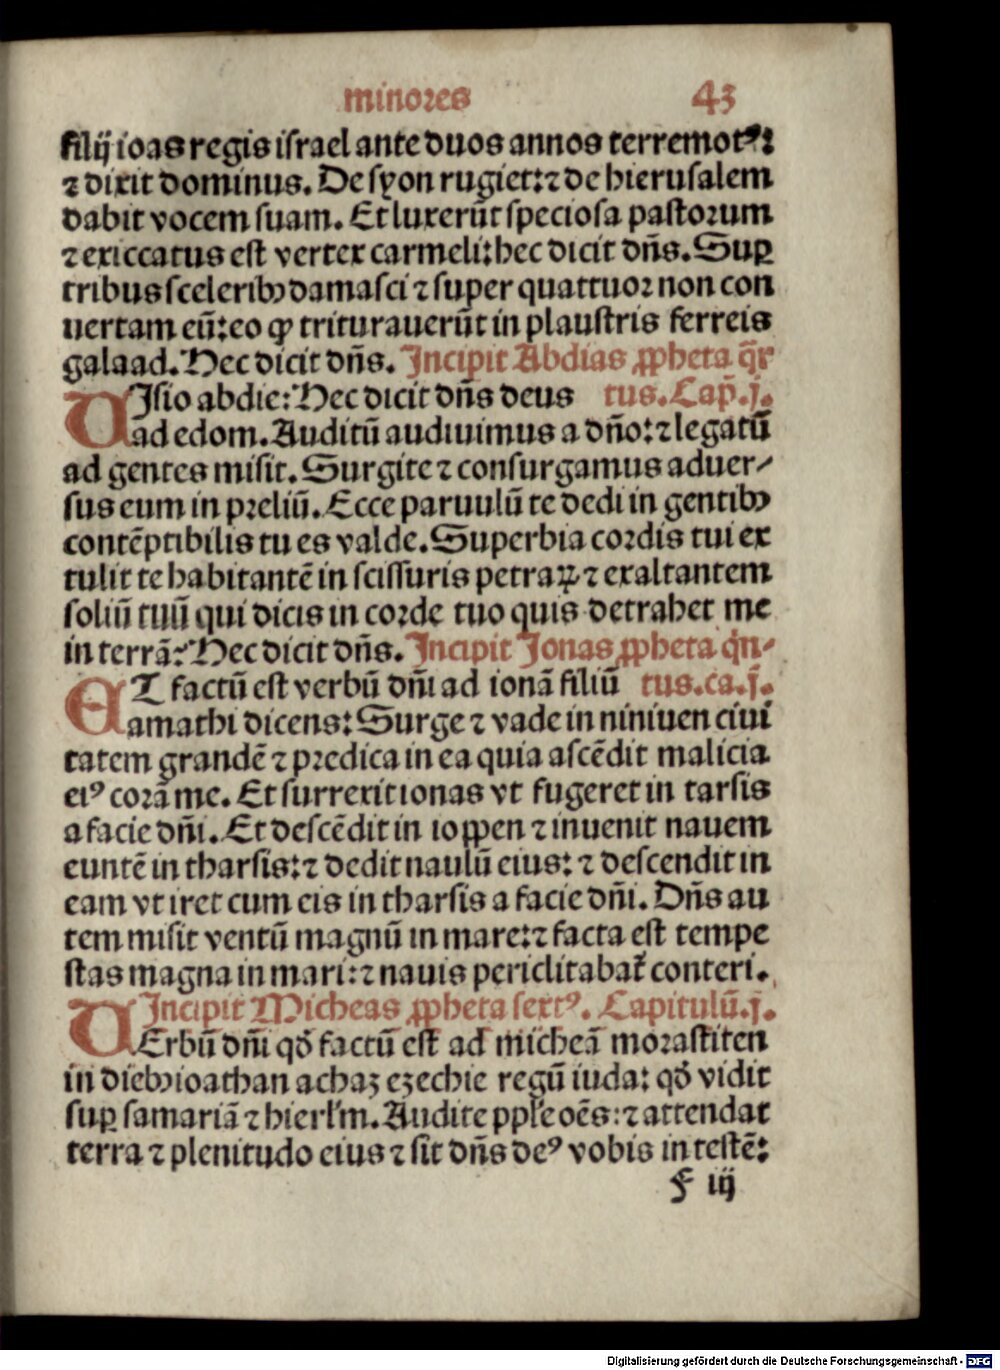 minores 43
filij ioas regis israel ante duos annos terremotꝰ:
⁊ dixit dominus. De syon rugiet:⁊ de hierusalem
dabit vocem suam. Et luxerũt speciosa pastorum
⁊ exiccatus est vertex carmeli:hec dicit dñs. Suꝑ
tribus sceleribꝫ damasci ⁊ super quattuor non con
uertam eũ:eo ꝙ triturauerũt in plaustris ferreis
galaad. Hec dicit dñs. Incipit Abdias ꝓpheta q̃r
VIsio abdie: Hec dicit dñs deus tus. Cap̃.j.
ad edom. Auditũ audiuimus a dño:⁊ legatũ
ad gentes misit. Surgite ⁊ consurgamus aduer/
sus eum in preliũ. Ecce paruulũ te dedi in gentibꝫ
contẽptibilis tu es valde. Superbia cordis tui ex
tulit te habitantẽ in scissuris petraꝝ ⁊ exaltantem
soliũ tuũ qui dicis in corde tuo quis detrahet me
in terrã? Hec dicit dñs. Incipit Jonas ꝓpheta q̇n/
ET factũ est verbũ dñi ad ionã filiũ tus.ca.j.
amathi dicens: Surge ⁊ vade in niniuen ciui
tatem grandẽ ⁊ predica in ea quia ascẽdit malicia
eiꝰ corã me. Et surrexit ionas vt fugeret in tarsis
a facie dñi. Et descẽdit in ioꝓpen ⁊ inuenit nauem
euntẽ in tharsis:⁊ dedit naulũ eius: ⁊ descendit in
eam vt iret cum eis in tharsis a facie dñi. Dñs au
tem misit ventũ magnũ in mare:⁊ facta est tempe
stas magna in mari:⁊ nauis periclitabat̃ conteri.
Incipit Micheas ꝓpheta sextꝰ. Capitulũ.j.
VErbũ dñi qð factũ est ad micheã morastiten
in diebꝫ ioathan achaz ezechie regũ iuda: qð vidit
suꝑ samariã ⁊ hierl'm. Audite ppl'e oẽs:⁊ attendat
terra ⁊ plenitudo eius ⁊ sit dñs deꝰ vobis in testẽ:
f iij
Digitalisierung gefördert durch die Deutsche Forschungsgemeinschaft - DFG